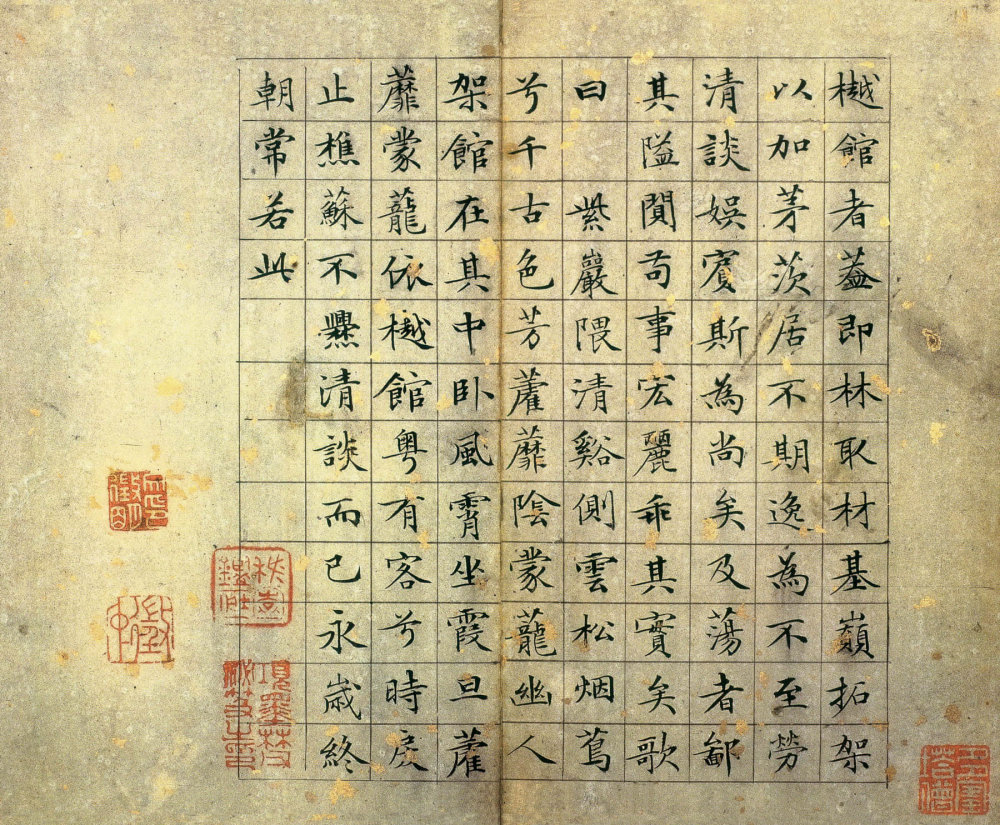 樾館者蓋即林取材基巔拓架
以加茅茨居不期逸為不至勞
清談娛賓斯為尚矣及蕩者鄙
其隘閴苟事宏麗乖其實矣歌
曰　紫巖隈清谿側雲松烟蔦
兮千古色芳藿蘼陰蒙蘢幽人
架館在其中卧風霄坐霞旦藿
蘼蒙蘢依樾館粵有客兮時戾
止樵蘇不爨清談而已永歲終
朝常若此